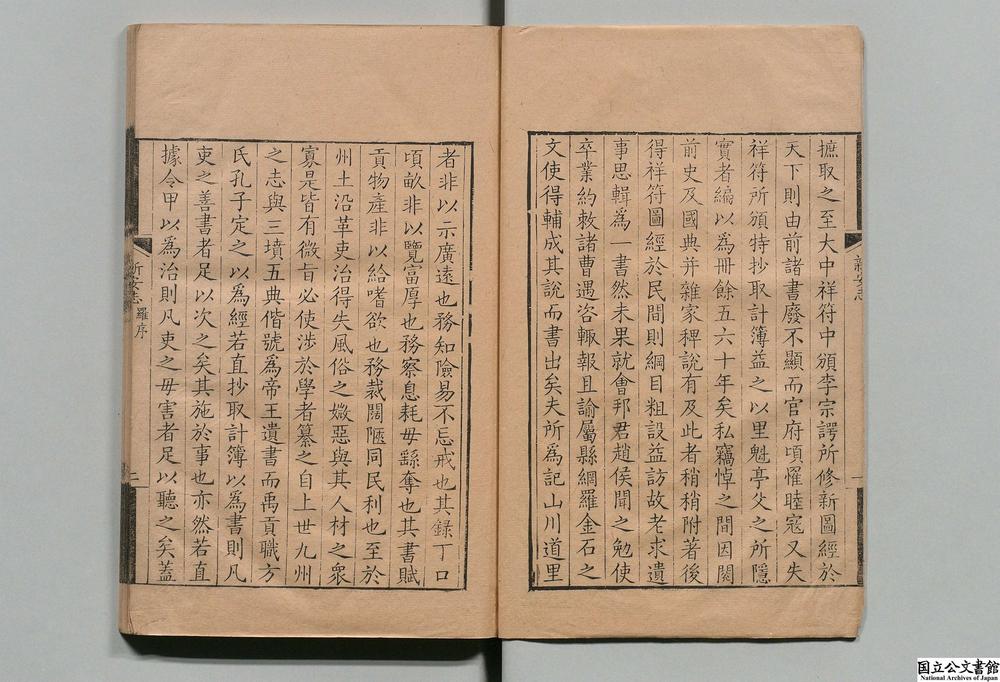 摭取之至大中祥符中頒李宗諤所修新圖經於
天下則由前諸書廢不顯而官府頃罹睦寇又失
祥符所頒特抄取計簿益之以里魁亭父之所隱
實者編以為冊餘五六十年矣私竊悼之間因閱
前史及國典并雜家稗說有及此者稍稍附著後
得祥符圖經於民間則綱目粗設益訪故老求遺
事思輯為一書然未果就會邦君趙侯聞之勉使
卒業約敕諸曹遇咨輙報且諭屬縣網羅金石之
文使得輔成其說而書出矣夫所為記山川道里
新安志
一
者非以示廣遠也務知險易不忘戒也其錄丁口
頃畝非以覽富厚也務察息耗毋繇奪也其書賦
貢物產非以給嗜欲也務裁闊陿同民利也至於
州土沿革吏治得失風俗之媺惡與其人材之衆
寡是皆有微旨必使涉於學者纂之自上世九州
之志與三墳五典偕號為帝王遺書而禹貢職方
氏孔子定之以為經若直抄取計簿以為書則凡
吏之善書者足以次之矣其施於事也亦然若直
據令甲以為治則凡吏之毋害者足以聽之矣蓋
新安志 羅序
二
国立公文書館
National Archives of Japan